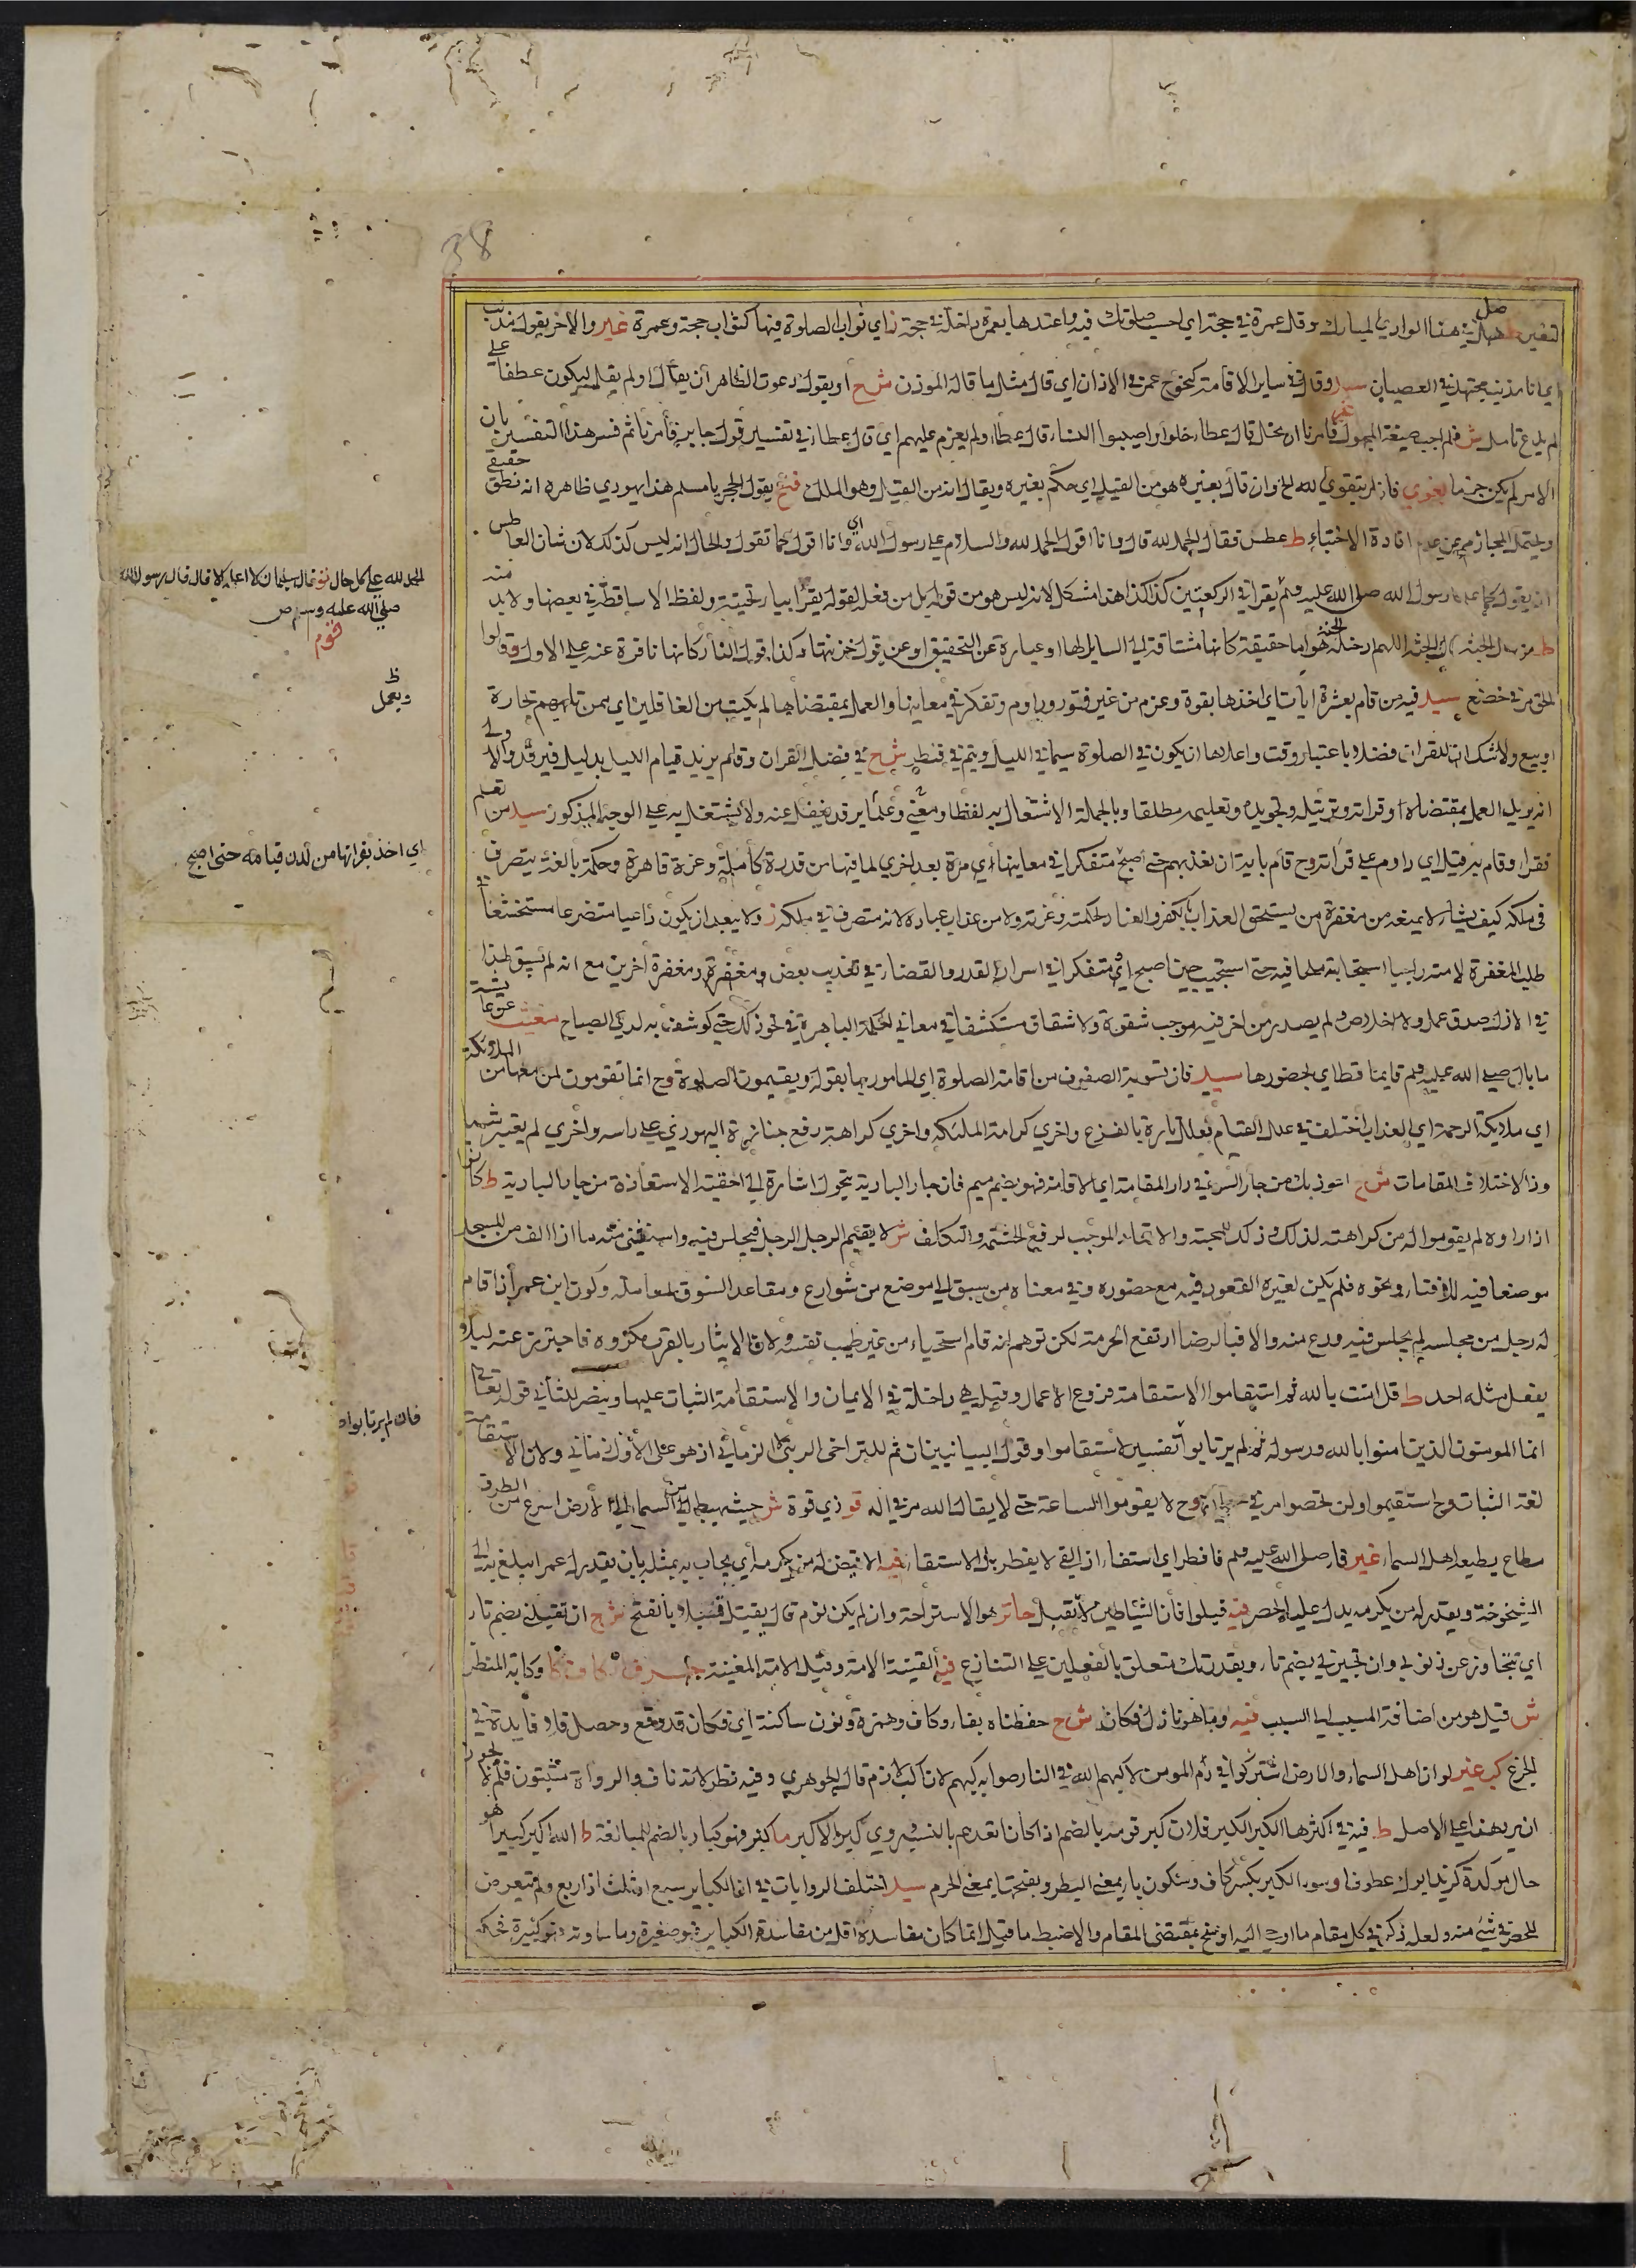 38
صل
في هذا الوادي المبارك وقل عمرة في حجة اي احسب صلوتك فيه واعتدها بعمرة داخلة في حجة ن اي ثواب الصلوة فيها كثواب حجة وعمرة غير والاخر يقول مذنب
اي انا مذنب مجتهد في العصيان سيد وقال في ساير الاقامة كنحو ح عمر في الاذان اي قال مثل ما قاله الموذن ش ح او يقول دعوت الظاهر ان يقال او لم يقل ليكون عطفا على
لم يدع تامل ش فلم اجب صيغة المجهول غير فامرنا ان نحل قال عطاء حلوا واصيبوا النساء قال عطاء ولم يعزم عليهم اي قال عطاء في تفسير قول جابر فأمرنا ثم فسر هذا التفسير بان
الامر لم يكن جزما بغوي فان امر بتقوى الله الخ وان قال بغيره هو من القيل اي حكم بغيره ويقال انه من القيل وهو الملك فتح يقول الحجر يا مسلم هذا يهودي ظاهره انه نطق حقيقي
ويحتمل المجاز من عدم افادة الاختباء ط عطس فقال الحمد لله قال وانا اقول الحمد لله والسلام على رسول الله اي وانا اقول كما تقول والحال انه ليس كذلك لان شان العاطس
ان يقول كما علم رسول الله صلى الله عليه وسلم يقرأ في الركعتين كذا كذا هذا مشكل لانه ليس هو من قوله بل من فعله لقوله يقرأ بياء تحتية ولفظ الا ساقط في بعضها ولا بد منه
ط من سأل الجنة قال الجنة اللهم ادخله الجنة هو اما حقيقة كانها مشتاقة الى السايل لها او عبارة عن التحقيق او عن قول خزنتها وكذا قول النار كانها نافرة عنه على الاول وقالوا
الحق مر في خضع سيد فيه من قام بعشرة ايات اي اخذها بقوة وعزم من غير فتور وداوم وتفكر في معانيها والعمل بمقتضاها لم يكتب من الغافلين اي ممن تلهيهم تجارة
او بيع ولا شك ان للقرآن فضلا باعتبار وقت واعلاها ان يكون في الصلوة سيما في الليل ويتم في قنطر ش ح في فضل القران وقالم يزيد قيام الليل بدليل فيرقد والاولى
انه يريد العمل بمقتضاه او قراته وترتيله وتجويده وتعليمه مطلقا وبالجملة الاشتغال به لفظا ومعنى وعملا يرقد يغفل عنه ولا يشتغل به على الوجه المذكور سيد من تعلم
فقرا وقام به قيل اي داوم على قراته وح قام باية ان تعذبهم حتى اصبح متفكرا في معانيها اي مرة بعد اخرى لما فيها من قدرة كاملة وعزة قاهرة وحكمة بالغة يتصرف
في ملكه كيف يشاء لا يمنعه من مغفرة من يستحق العذاب بالكفر والعناد لحكمته وعزته ولا من عذاب عباده لانه متصرف في ملكه ز ولا يبعد ان يكون داعيا متضرعا مستخشعا
طلب المغفرة لامته راجيا استجابته ملحا فيه حتى استجيب حين اصبح او متفكرا في اسرار القدر والقضاء في تعذيب بعض ومغفرة اخرين مع انه لم يسبق لهذا
في الازل صدق عمل ولا اخلاص ولم يصدر من اخر فيه موجب شقوة ولا شقاق مستكشفا في معاني الحكمة الباهرة في نحو ذلك حتى كوشف به لدى الصباح مغيث
ما بال صلى الله عليه وسلم قايما قط اي لحضورها سيد فان تسوية الصفوف من اقامة الصلوة اي المامور بها بقوله ويقيمون الصلوة وح انما تقومون لمن معها من الملائكة
اي ملائكة الرحمة اي العذاب اختلف في علل القيام فعلل تارة بالفزع واخرى كرامة الملئكة واخرى كراهة رفع جنازة اليهودي على راسه واخرى لم يعتبر شيئا
وذا لاختلاف المقامات ش ح اعوذ بك من جار السوء في دار المقامة اي الاقامة فهو بضم ميم فان جار البادية يتحول اشارة الى احقية الاستعاذة من جار البادية ط كانوا
اذا راوه لم يقوموا له من كراهته لذلك وذلك للمحبة والاتحاد الموجب لرفع الحشمة والتكلف ش لا يقيم الرجل الرجل فيجلس فيه واستثني منه ما اذا الف من المسجد
موضعا فيه للافتاء ونحوه فلم يكن لغيره القعود فيه مع حضوره وفي معناه من سبق الى موضع من شوارع ومقاعد السوق لمعاملة وكون ابن عمر اذا قام
له رجل من مجلسه لم يجلس فيه ورع منه والا فبالرضا ارتفع الحرمة لكن توهم انه قام استحياء من غير طيب نفسه ولان الايثار بالقرب مكروه فاحترز عنه ليلا
يفعل مثله احد ط قل امنت بالله ثم استقاموا الاستقامة فروع الاعمال وقيل هي داخلة في الايمان والاستقامة الثبات عليها وينصر للثاني قوله تعالى
انما المومنون الذين امنوا بالله ورسوله ثم لم يرتابوا تفسير لاستقاموا وقول البيانيين ان ثم للتراخي الرتبي لا الزماني اذ هو على الاول زماني ولان الاستقامة
لغة الثبات وح استقيموا ولن تحصوا مر في ح لا يقوموا الساعة حتى لا يقال الله مر في اله قو ذي قوة ش حيث يهبط من السماء الى الارض اسرع من الطرف
مطاع يطيعه اهل السماء غير قاء صلى الله عليه وسلم فافطر اي استقاء اذ القيء لا يفطر بل الاستقاء فيه الا قيض له من يكرمه اي يجاب به بمثله بان يقدر له عمر ابلغ به الى
الشيخوخة ويقدر له من يكرمه يدل عليه الحصر فيه قيلوا فان الشياطين لا تقيل حاتر هو الاستراحة وان لم يكن نوم قال يقيل قيلا بالفتح ش ح ان تقيلني بضم تاء
اي تتجاوز عن ذنوبي وان تجيرني بضم تاء وبقدرتك متعلق بالفعلين على التنازع فيه القينة الامة وقيل الامة المغنية وكابة المنظر
ش قيل هو من اضافة المسبب الى السبب فيه وما هو نازل فكان ش ح حفظناه بفاء وكاف وهمزة ونون ساكنة اي فكان قد وقع وحصل فلا فايدة في
الجزع كب غير لو ان اهل السماء والارض اشتركوا في دم المومن لاكبهم الله في النار صوابه كبهم لان اكب لازم قاله الجوهري وفيه نظر لانه ناف والرواة مثبتون فلم لا
ان يرد هذا على الاصل ط فيه في اكثرها الكبر الكبر قلادت كبر قومه بالضم اذا كان اقعدهم بالنسب وروي كبر الاكبر ما كثر فهو كبار بالضم للمبالغة ط الله اكبر كبيرا هو
حال مركدة كزيد ابوك عطوفا وسوء الكبر بكسر كاف وسكون باء بمعنى البطر وبفتحها بمعنى الهرم سيد اختلف الروايات في انها الكباير سبع او ثلث او اربع ولم تتعرض
للحصر في شيء منه ولعله ذكر في كل مقام ما اوحي اليه او سنح بمقتضى المقام والاضبط ما قيل انما كان مفاسده اقل من مفاسدة الكباير فهو صغيرة وما ساوته فهو كبيرة فحكه
الحمد لله على كل حال نو قال سليمان لا اعلمه الا قال قال رسول الله
صلى الله عليه وسلم ص
قوم
ظ
ويعمل
اي اخذ بقراتها من لدن قيامه حتى اصبح
فان لم يرتابوا